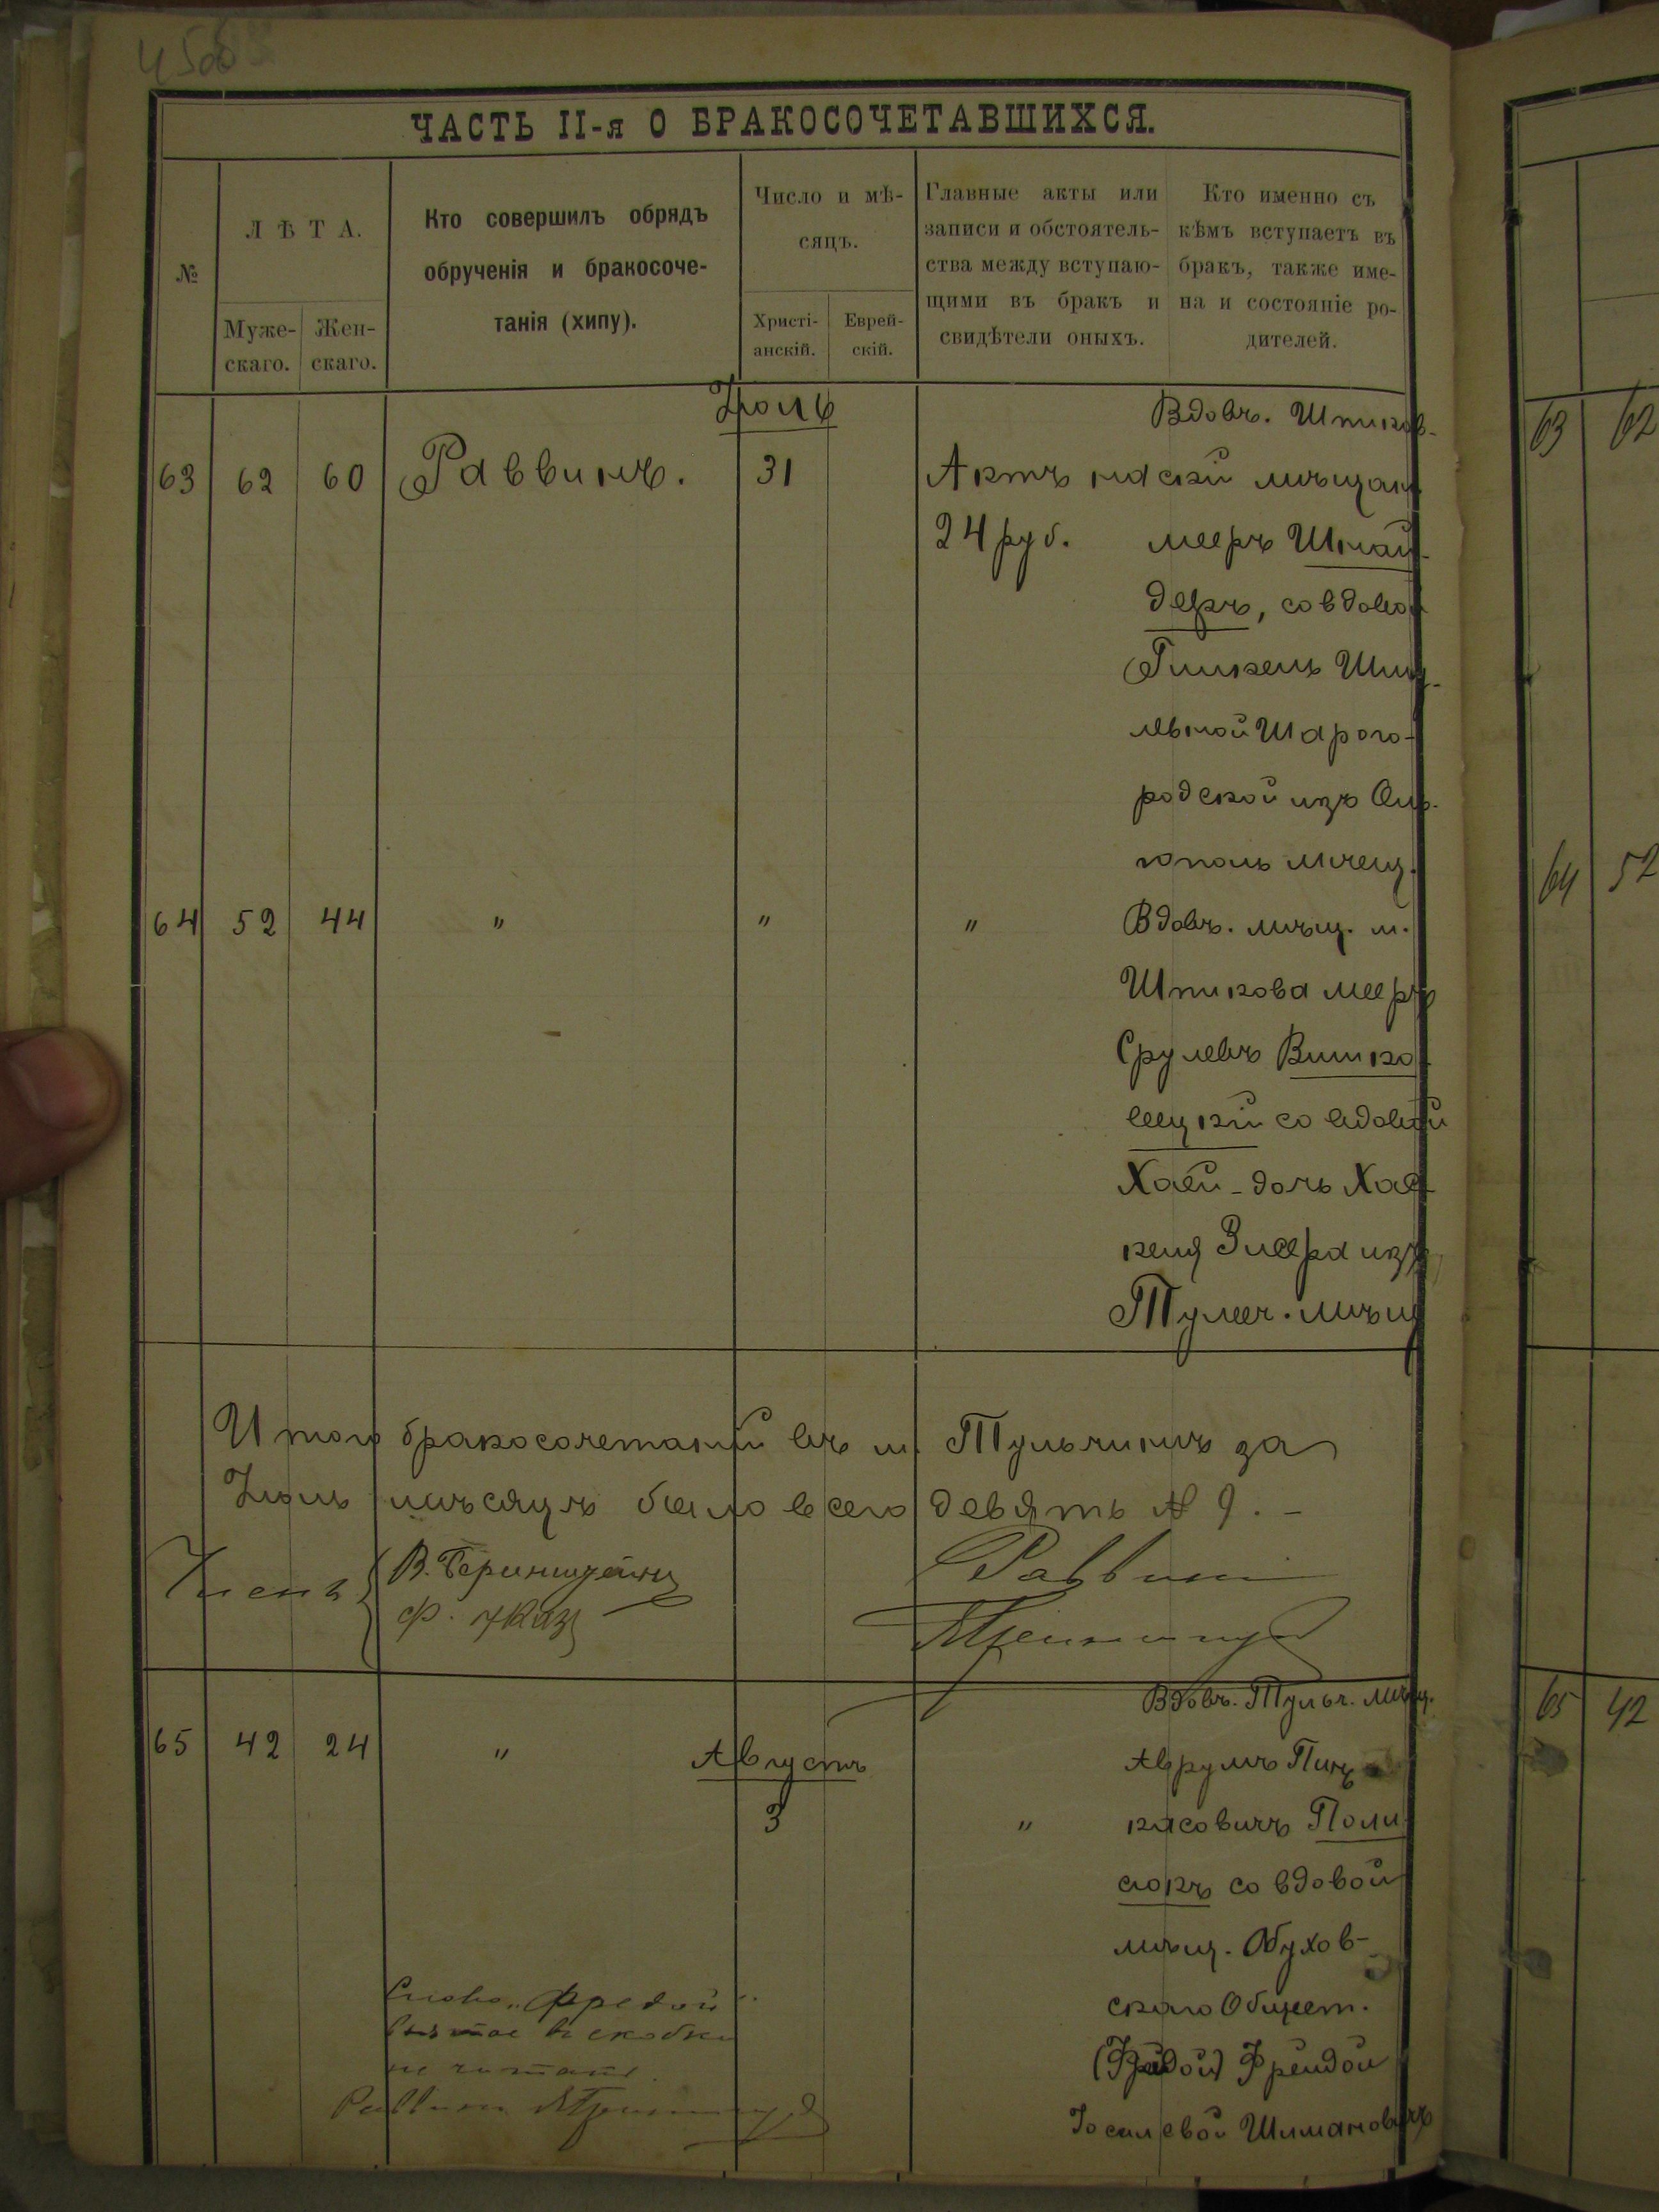 ЧАСТЬ II-я О БРАКОСОЧЕТАВШИХСЯ.
№
ЛѢТА.
Муже-
скаго.
Жен-
скаго.
Кто совершилъ обрядъ
обрученія и бракосоче-
танія (хипу).
Число и мѣ-
сяцъ.
Христі-
анскій.
Еврей-
скій.
Главные акты или
записи и обстоятель-
ства между вступаю-
щими въ бракъ и
свидѣтели оныхъ.
Кто именно съ
кѣмъ вступаетъ въ
бракъ, также име-
на и состояніе ро-
дителей.
Іюль
63 62 60 Раввинъ. 31 Актъ на
24 руб.
Вдовъ. Шпиков-
скій мѣщан.
Мееръ Шнай-
деръ, со вдовой
Шму-
левной Шарого-
родской изъ Оль-
гополь мѣщ.
64 52 44 " " "
Вдовъ. мѣщ. м.
Шпикова Мееръ
Срулевъ Вишко-
вецкій со вдовой
Хаей-дочь Хас-
келя изъ
Тульч. мѣщ.
Итого бракосочетаній въ м. Тульчинъ за
Іюль мѣсяцъ было всего девять № 9. -
Члены В. Беринштейнъ
Раввинъ
65 42 24 " Августъ
3 "
Вдовъ. Тульч. мѣщ.
Аврумъ Пин-
касовичъ Поли-
сюкъ со вдовой
мѣщ. Обухов-
скаго Общест.
Фрейдой
Іоселевой Шимановичъ
Слово "Фредой"
взятое въ скобки
не читать.
Раввинъ
63 62
64 52
65 42